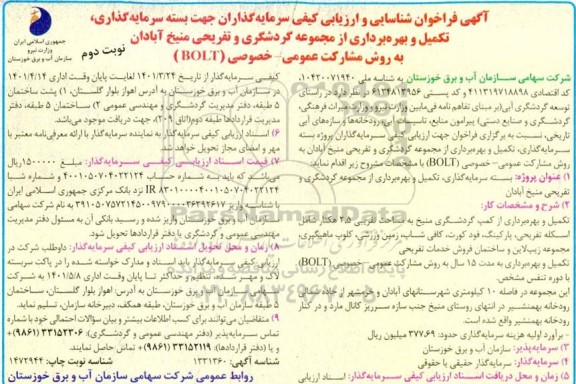 آگهی فراخوان شناسایی و ارزیابی کیفی سرمایه‌گذاران جهت بسته سرمایه‌گذاری،
تکمیل و بهره‌برداری از مجموعه گردشگری و تفریحی منیخ آبادان
به روش مشارکت عمومی- خصوصی (BOLT)
نوبت دوم
جمهوری اسلامی ایران
وزارت نیرو
سازمان آب و برق خوزستان
شرکت سهامی سازمان آب و برق خوزستان به شناسه ملی ۱۰۴۲۰۰۷۱۹۴۰،
کد اقتصادی ۴۱۱۳۹۷۱۸۸۹۸ و کد پستی ۶۱۳۴۸۱۳۹۵۶ در نظر دارد در راستای
توسعه گردشگری آبی(بر مبنای تفاهم نامه فی‌مابین وزارت نیرو و وزارت میراث فرهنگی،
گردشگری و صنایع دستی) پیرامون منابع، تاسیسات آبی، رودخانه‌ها و سازه‌های آبی
تاریخی، نسبت به برگزاری فراخوان جهت ارزیابی کیفی سرمایه‌گذاران پروژه بسته
سرمایه‌گذاری، تکمیل و بهره‌برداری از مجموعه گردشگری و تفریحی منیخ آبادان به
روش مشارکت عمومی- خصوصی (BOLT) با مشخصات مشروح زیر اقدام نماید:
۱) عنوان پروژه: بسته سرمایه‌گذاری، تکمیل و بهره‌برداری از مجموعه گردشگری و
تفریحی منیخ آبادان
۲) شرح و مشخصات کار:
تکمیل و بهره‌برداری از کمپ گردشگری منیخ به مساحت تقریبی ۳.۵ هکتار شامل
اسکله تفریحی، پارکینگ، فود کورت، کافی شاپ، زمین ورزشی، کلوپ ماهیگیری،
مجموعه زیپ‌لاین و ساختمان فروش خدمات تفریحی
تکمیل و بهره‌برداری به مدت ۱۵ سال به روش مشارکت عمومی- خصوصی (BOLT)
با دوره تنفس مشخص
این مجموعه در فاصله ۱۰ کیلومتری شهرستانهای آبادان و خرمشهر از جاده دسترسی
رودخانه بهمنشیر در انتهای روستای منیخ جنب سازه سرریز کانال مارد و در کنار
رودخانه بهمنشیر واقع شده است.
- برآورد اولیه هزینه سرمایه‌گذاری حدود: ۳۷۷.۶۹ میلیون ریال
۳) سرمایه‌پذیر: سازمان آب و برق خوزستان
۴) سرمایه‌گذار: سرمایه‌گذار حقیقی یا حقوقی
۵) زمان و محل دریافت اسناد ارزیابی کیفی سرمایه‌گذار: اسناد ارزیابی
کیفی سرمایه‌گذار از تاریخ ۱۴۰۱/۳/۲۴ لغایت پایان وقت اداری ۱۴۰۱/۴/۱۴
در سازمان آب و برق خوزستان به آدرس اهواز بلوار گلستان، ۱) پشت ساختمان
۵ طبقه، دفتر مدیریت گردشگری و مهندسی عمومی ۲) ساختمان ۵ طبقه، دفتر
مدیریت قراردادها طبقه دوم(اتاق ۲۰۹)، جهت دریافت موجود می‌باشد.
۶) اسناد ارزیابی کیفی سرمایه‌گذار به نماینده سرمایه‌گذار با ارائه معرفی‌نامه معتبر با
مهر و امضای مجاز تحویل خواهد شد.
۷) قیمت اسناد ارزیابی کیفی سرمایه‌گذار: مبلغ ۱۵۰۰۰۰۰ ریال
می‌باشد که باید به شماره حساب ۴۰۰۱۰۵۰۷۰۴۰۲۲۱۲۴ و شماره شبا
نزد بانک مرکزی جمهوری اسلامی ایران
به نام شرکت سهامی
سازمان آب و برق خوزستان واریز شده و رسید بانکی آن به مسئول دفتر مدیریت
مهندسی عمومی و گردشگری یا دفتر قراردادها تحویل شود.
۸) زمان و محل تحویل اسناد ارزیابی کیفی سرمایه‌گذار: داوطلب شرکت در
ارزیابی کیفی سرمایه‌گذار باید اسناد و مدارک خواسته شده را در پاکت سربسته
لاک و مهر شده، تنظیم و حداکثر تا پایان وقت اداری ۱۴۰۱/۵/۸ به شرکت
سهامی سازمان آب و برق خوزستان به آدرس: اهواز بلوار گلستان، ساختمان
سازمان آب و برق خوزستان، طبقه همکف، دبیرخانه سازمان، تسلیم نماید.
۹) متقاضیان می‌توانند برای کسب اطلاعات بیشتر و بیان سؤالات احتمالی خود با شماره
تماس سرمایه‌پذیر (دفتر مهندسی عمومی و گردشگری): ۳۳۱۵۲۳۰۶ (۹۸۶۱+)
و یا (دفتر قراردادها): ۳۳۱۵۲۱۱۹ (۹۸۶۱+) تماس حاصل نمایند.
شناسه آگهی: ۱۳۳۱۳۶۰ شناسه نوبت چاپ: ۱۴۷۲۹۴۴
روابط عمومی شرکت سهامی سازمان آب و برق خوزستان